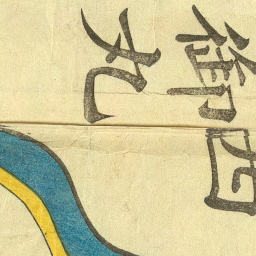 御西
丸